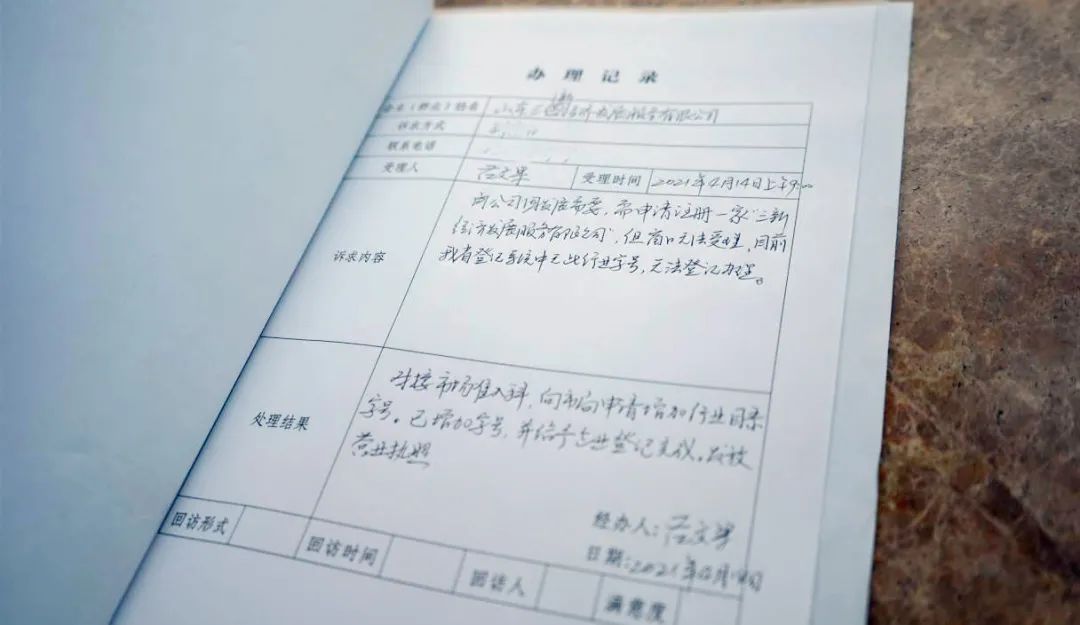 办理记录
企业（群众）姓名 山东三新经济发展服务有限公司
诉求方式
联系电话
受理人 受理时间 2021年4月14日上午9:00
诉求内容
因公司发展需要，需申请注册一家“三新
经济发展服务有限公司”，但窗口无法受理，目前
我省登记系统中无此行业字号，无法登记办理。
处理结果
对接市场准入科，向市局申请增加行业目录
字号。已增加字号，并给予企业登记完成，发放
营业执照
经办人：
日期：2021年4月 日
回访形式 回访时间 回访人 满意度